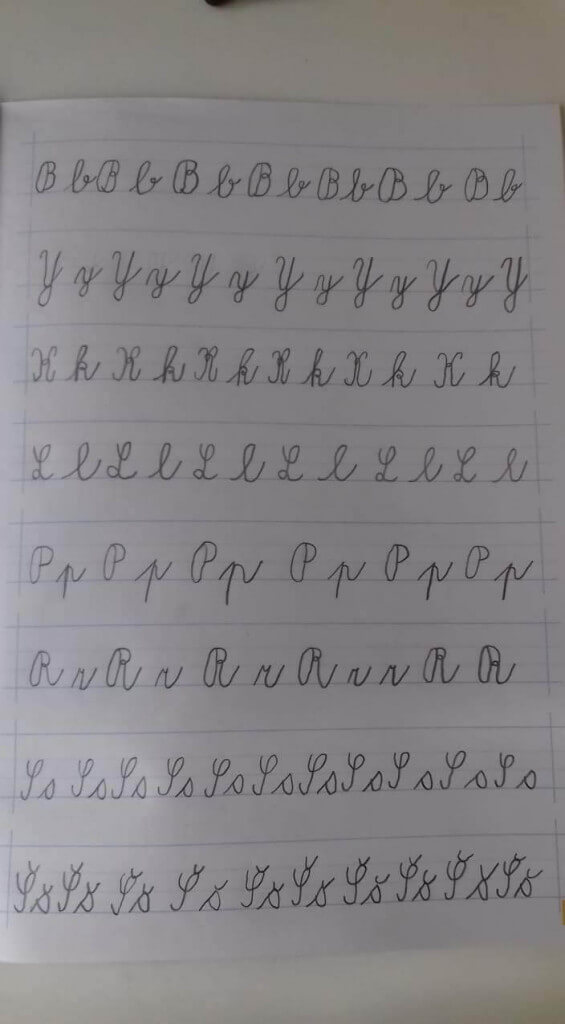 B b B b B b B b B b B b B b
Y y Y y Y y Y y Y y Y y Y
K k K k K k K k K k K k
L l L l L l L l L l L l
P p P p P p P p P p P p
R r R r R r R r r R R
S s S s S s S s S s S s S s S s S s S s S s
Š š Š š Š š Š š Š š Š š Š š Š š Š š Š š